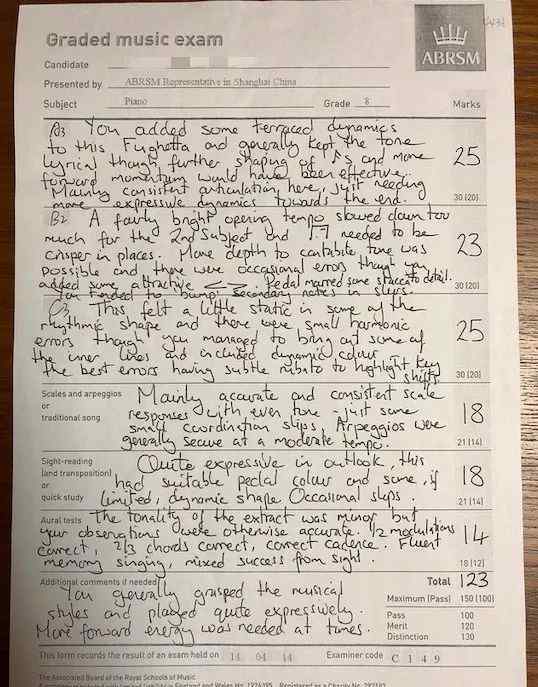 Graded music exam
ABRSM
Candidate
Presented by ABRSM Representative in Shanghai China
Subject Piano Grade 8 Marks
A3 You added some terraced dynamics
to this Fughetta and generally kept the tone
lyrical though further shaping of and more
forward momentum would have been effective.
Mainly consistent articulation, here, just needing
more expressive dynamics towards the end.
25
30 (20)
B2 A fairly bright opening tempo slowed down too
much for the 2nd Subject and needed to be
crisper in places. More depth to cantabile tone was
possible and there were occasional errors though you
added some attractive <> . Pedal marred some staccato detail.
You tended to 'bump' secondary notes in slurs.
23
30 (20)
C3 This felt a little static in some of the
rhythmic shape and there were small harmonic
errors though you managed to bring out some of
the inner lines and included dynamic colour
the best errors having subtle rubato to highlight key
shifts.
25
30 (20)
Scales and arpeggios
or
traditional song
Mainly accurate and consistent scale
responses with even tone - just some
small coordination slips. Arpeggios were
generally secure at a moderate tempo.
18
21 (14)
Sight-reading
(and transposition)
or
quick study
Quite expressive in outlook, this
had suitable pedal colour and some, if
limited, dynamic shape. Occasional slips.
18
21 (14)
Aural tests
The tonality of the extract was minor but
your observations were otherwise accurate. 1/2 modulations
correct, 2/3 chords correct, correct cadence. Fluent
memory singing, mixed success from sight.
14
18 (12)
Additional comments (if needed)
You generally grasped the musical
styles and played quite expressively.
More forward energy was needed at times.
Total 123
Maximum (Pass) 150 (100)
Pass 100
Merit 120
Distinction 130
This form records the result of an exam held on 14 04 14 Examiner code C 1 4 9
The Associated Board of the Royal Schools of Music